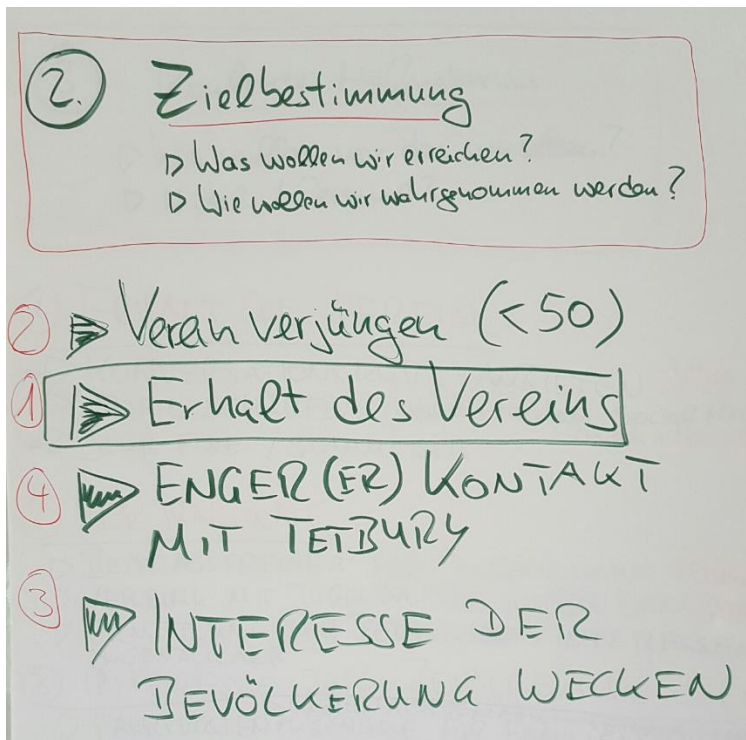 2. Zielbestimmung
▷ Was wollen wir erreichen?
▷ Wie wollen wir wahrgenommen werden?
2 Verein verjüngen (<50)
1 Erhalt des Vereins
4 ENGER(ER) KONTAKT
MIT TETBURY
3 INTERESSE DER
BEVÖLKERUNG WECKEN